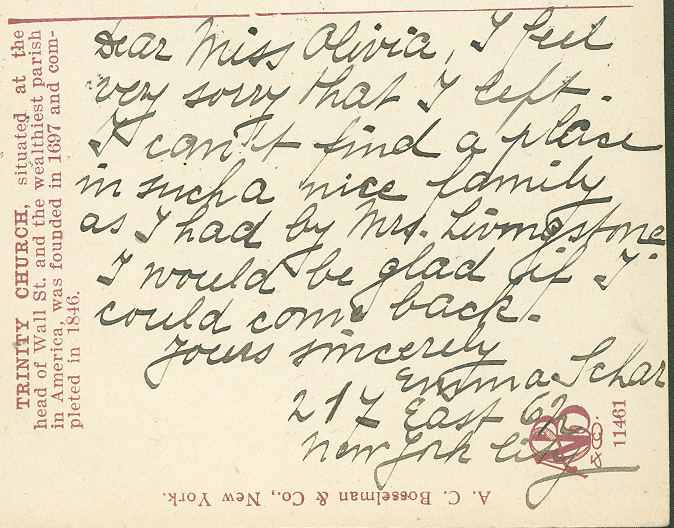 Dear Miss Olivia, I feel
very sorry that I left.
I can't find a place
in such a nice family
as I had by Mrs. Livingstone
I would be glad if I
could come back.
Yours sincerely
Emma Schar
217 East 62
New York City
TRINITY CHURCH, situated at the
head of Wall St. and the wealthiest parish
in America, was founded in 1697 and com-
pleted in 1846.
A. C. Bosselman & Co., New York.
& Co.
11461